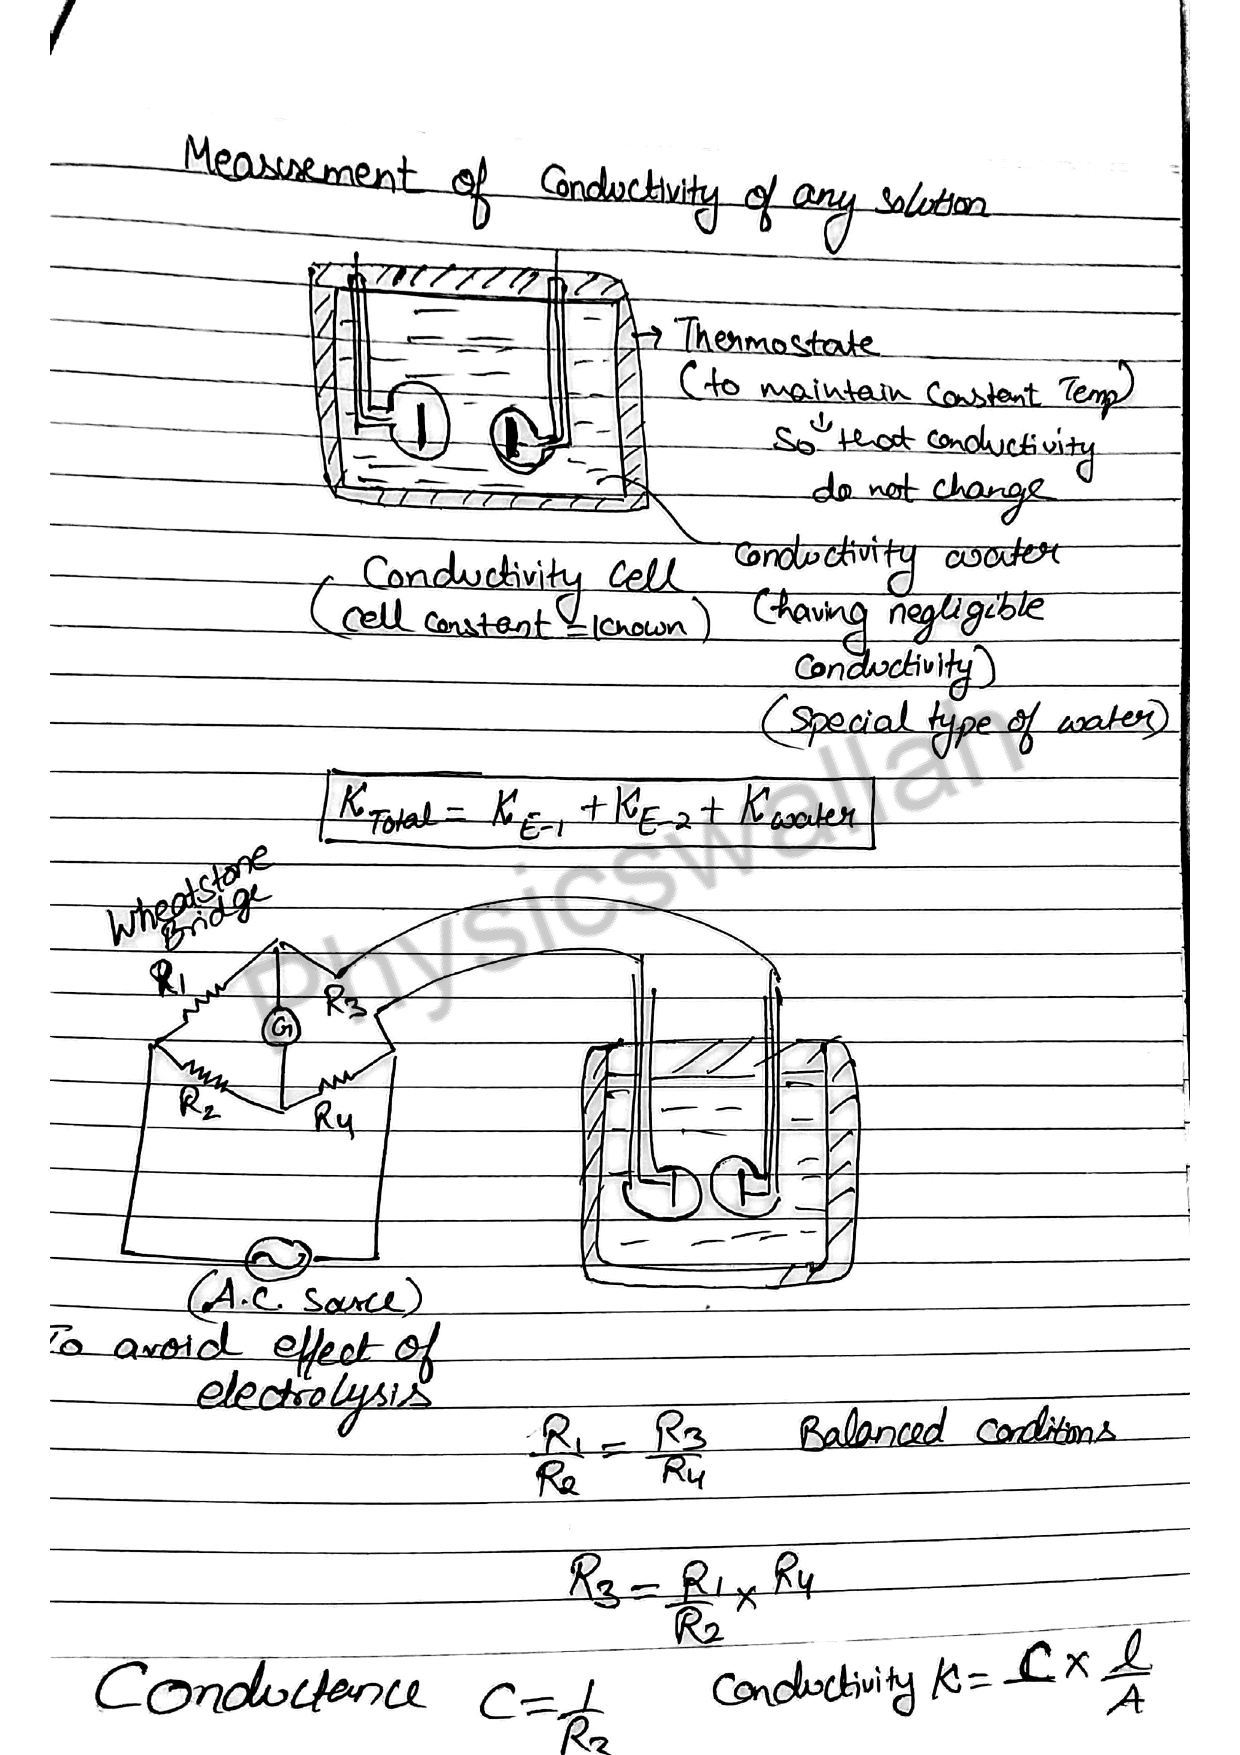 Measurement of Conductivity of any solution
→ Thermostate
(to maintain constant Temp)
↓
so that conductivity
do not change
Conductivity cell
(cell constant = known)
conductivity water
(having negligible
conductivity)
(special type of water)
K Total = K E-1 + K E-2 + K water
Physicswallah
Wheatstone
Bridge
R1
R3
G
R2
R4
(A.C. Source)
To avoid effect of
electrolysis
R1/R2 = R3/R4 Balanced conditions
R3 = R1/R2 × R4
Conductance C = 1/R3 Conductivity K = C × l/A